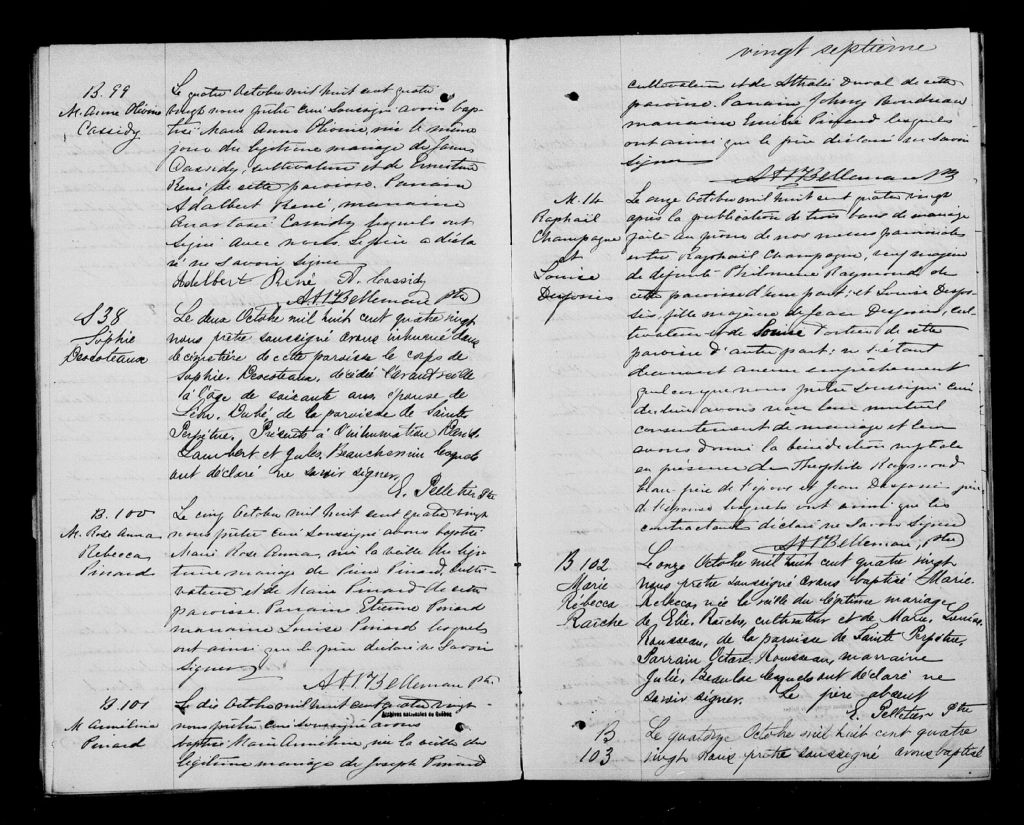 B. 99
M. Anne Olivine
Cassidy
Le quatre Octobre mil huit cent quatre
vingt nous prêtre curé soussigné avons bap-
tisé Marie Anne Olivine, née le même
jour du légitime mariage de James
Cassidy, cultivateur et de Ernestine
René de cette paroisse. Parrain
Adalbert René, marraine
Anastasie Cassidy lesquels ont
signé avec nous. Le père a décla
ré ne savoir signer
Adelbert René A. Cassidy
A. H. Belleman Ptre
S 38
Sophie
Descoteaux
Le deux Octobre mil huit cent quatre vingt
nous prêtre soussigné avons inhumé dans
le cimetière de cette paroisse le corps de
Sophie Descoteaux, décédée l'avant veille
à l'âge de soixante ans, épouse de
Léon Dubé de la paroisse de Sainte
Perpétue. Présents à l'inhumation
Lambert et Jules Beauchemin lesquels
ont déclaré ne savoir signer.
E. Pelletier Ptre
B. 100
M. Rose Anna
Rébecca
Pinard
Le cinq Octobre mil huit cent quatre vingt
nous prêtre curé soussigné avons baptisé
Marie Rose Anna, née la veille du légi-
time mariage de Pierre Pinard, culti-
vateur et de Marie Pinard de cette
paroisse. Parrain Etienne Pinard
marraine Louise Pinard lesquels
ont ainsi que le père déclaré ne savoir
signer
A. H. Belleman Ptr
B. 101
M. Annélina
Pinard
Le dix Octobre mil huit cent quatre vingt-
Archives nationales du Québec
nous prêtre curé soussigné avons
baptisé Marie Annélina, née la veille du
légitime mariage de Joseph Pinard
vingt septième
cultivateur et de Athalie Duval de cette
paroisse. Parrain Johny Boudreau
marraine Emilie Pinard lesquels
ont ainsi que le père déclaré ne savoir
signer
A. H. Belleman Ptr
M. 14
Raphaël
Champagne
et
Louise
Desfossés
Le onze Octobre mil huit cent quatre vingt
après la publication de trois bans de mariage
faite au prône de nos messes paroissiales
entre Raphaël Champagne, veuf majeur
de défunte Philomène Raymond de
cette paroisse d'une part; et Louise Desfos-
sés, fille majeure de Jean Desfossés, cul-
tivateur et de Louise Portier de cette
paroisse d'autre part; ne s'étant
découvert aucun empêchement
quelconque nous prêtre soussigné curé
du lieu avons reçu leur mutuel
consentement de mariage et leur
avons donné la bénédiction nuptiale
en présence de Théophile Raymond
beau-père de l'époux et Jean Desfossés père
de l'épouse lesquels ont ainsi que les
contractants déclaré ne savoir signer
A. H. Belleman, Ptr
B 102
Marie
Rébecca
Raîche
Le onze Octobre mil huit cent quatre vingt
nous prêtre soussigné avons baptisé Marie
Rébecca née la veille du légitime mariage
de Elie Raîche, cultivateur et de Marie Louise
Rousseau, de la paroisse de Sainte Perpétue.
Parrain Octave Rousseau, marraine
Julie Beaulac lesquels ont déclaré ne
savoir signer. Le père absent
E. Pelletier Ptre
B
103
Le quatorze Octobre mil huit cent quatre
vingt nous prêtre soussigné avons baptisé